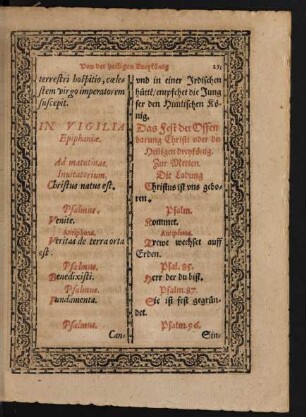 Von der heiligen Dreykönig
terrestri hospitio, cœle-
stem virgo imperatorem
suscepit.
IN VIGILIA
Epiphaniæ.
Ad matutinas.
Inuitatorium.
Christus natus est.
Psalmus.
Venite.
Antiphona.
Veritas de terra orta
est.
Psalmus.
Benedixisti.
Psalmus.
Fundamenta.
Psalmus.
Can-
vnd in einer Irdischen
hütte/ entpfehet die Jung
fer den Himlischen Kö-
nig.
Das Fest der Offen
barung Christi oder der
Heiligen dreykönig.
Zur Metten.
Die Ladung
Christus ist vns gebo-
ren.
Psalm.
Kommet.
Antiphona.
Trewe wechset auff
Erden.
Psal. 85.
Herr der du bist.
Psalm. 87.
Sie ist fest gegrün-
det.
Psalm. 96.
Sin-